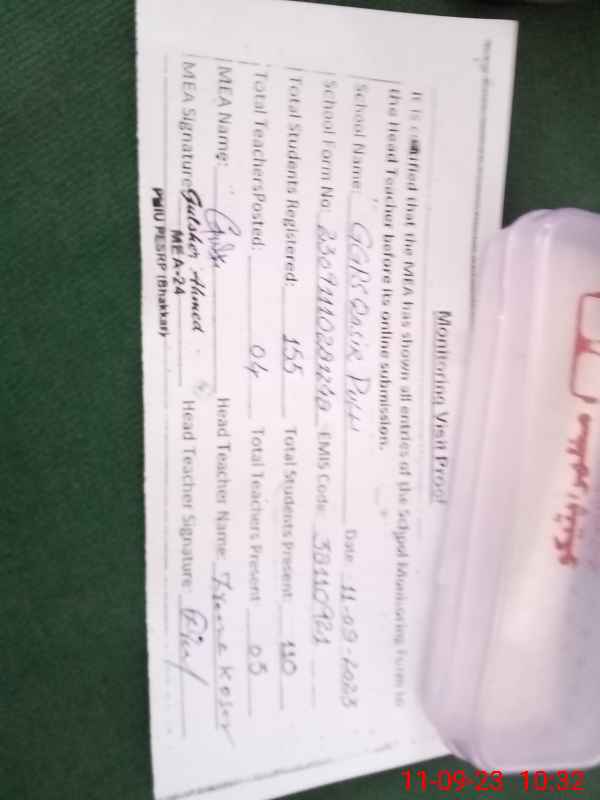 Monitoring Visit Proof
It is certified that the MEA has shown all entries of the School Monitoring Form to
the Head Teacher before its online submission.
School Name: GGPS Date 11-09-2023
School Form No: EMIS Code 38110921
Total Students Registered: 155 Total Students Present 110
Total TeachersPosted: 04 Total Teachers Present 03
MEA Name: Head Teacher Name: Koser
MEA Signature Gulsher Ahmed Head Teacher Signature:
MEA-24
PMIU PESRP (Bhakkar)
11-09-23 10:32